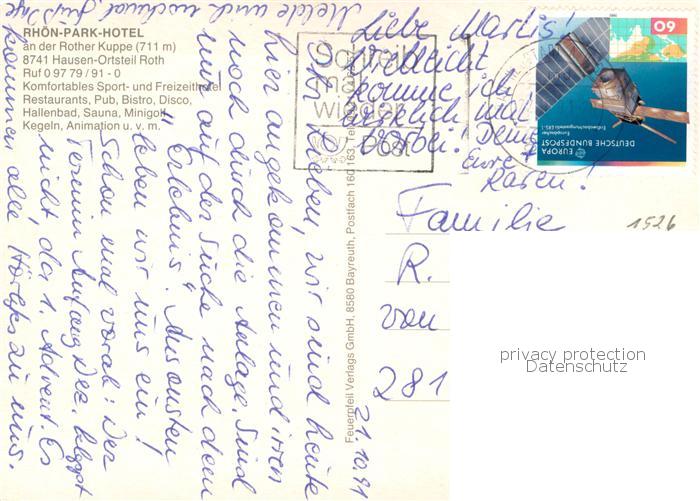 RHÖN-PARK-HOTEL
an der Rother Kuppe (711 m)
8741 Hausen-Ortsteil Roth
Ruf 0 97 79 / 91 - 0
Komfortables Sport- und Freizeithotel
Restaurants, Pub, Bistro, Disco,
Hallenbad, Sauna, Minigolf
Kegeln, Animation u. v. m.
21.10.91
Ihr Lieben, wir sind heute
hier angekommen und irren
noch durch die Anlage. Sind
nur auf der Suche nach dem
"Erlebnis". Ansonsten
leben wir uns ein!
Schon mal vorab: Der
Termin Anfang Dez. klappt
nicht, da 1. Advent. Es
kommen alle Hörlgs zu uns.
Melde mich nochmal.
Liebe Marlis!
Vielleicht
komme ich
wirklich mal
vorbei!
eure
Karen!
Schreib
mal
wieder
Post
60
EUROPA
DEUTSCHE BUNDESPOST
Europäischer
Erdbeobachtungssatellit ERS-1
Feuerpfeil Verlags GmbH, 8580 Bayreuth, Postfach 160 163, Tel.
Familie
R.
von
281
1526
privacy protection
Datenschutz